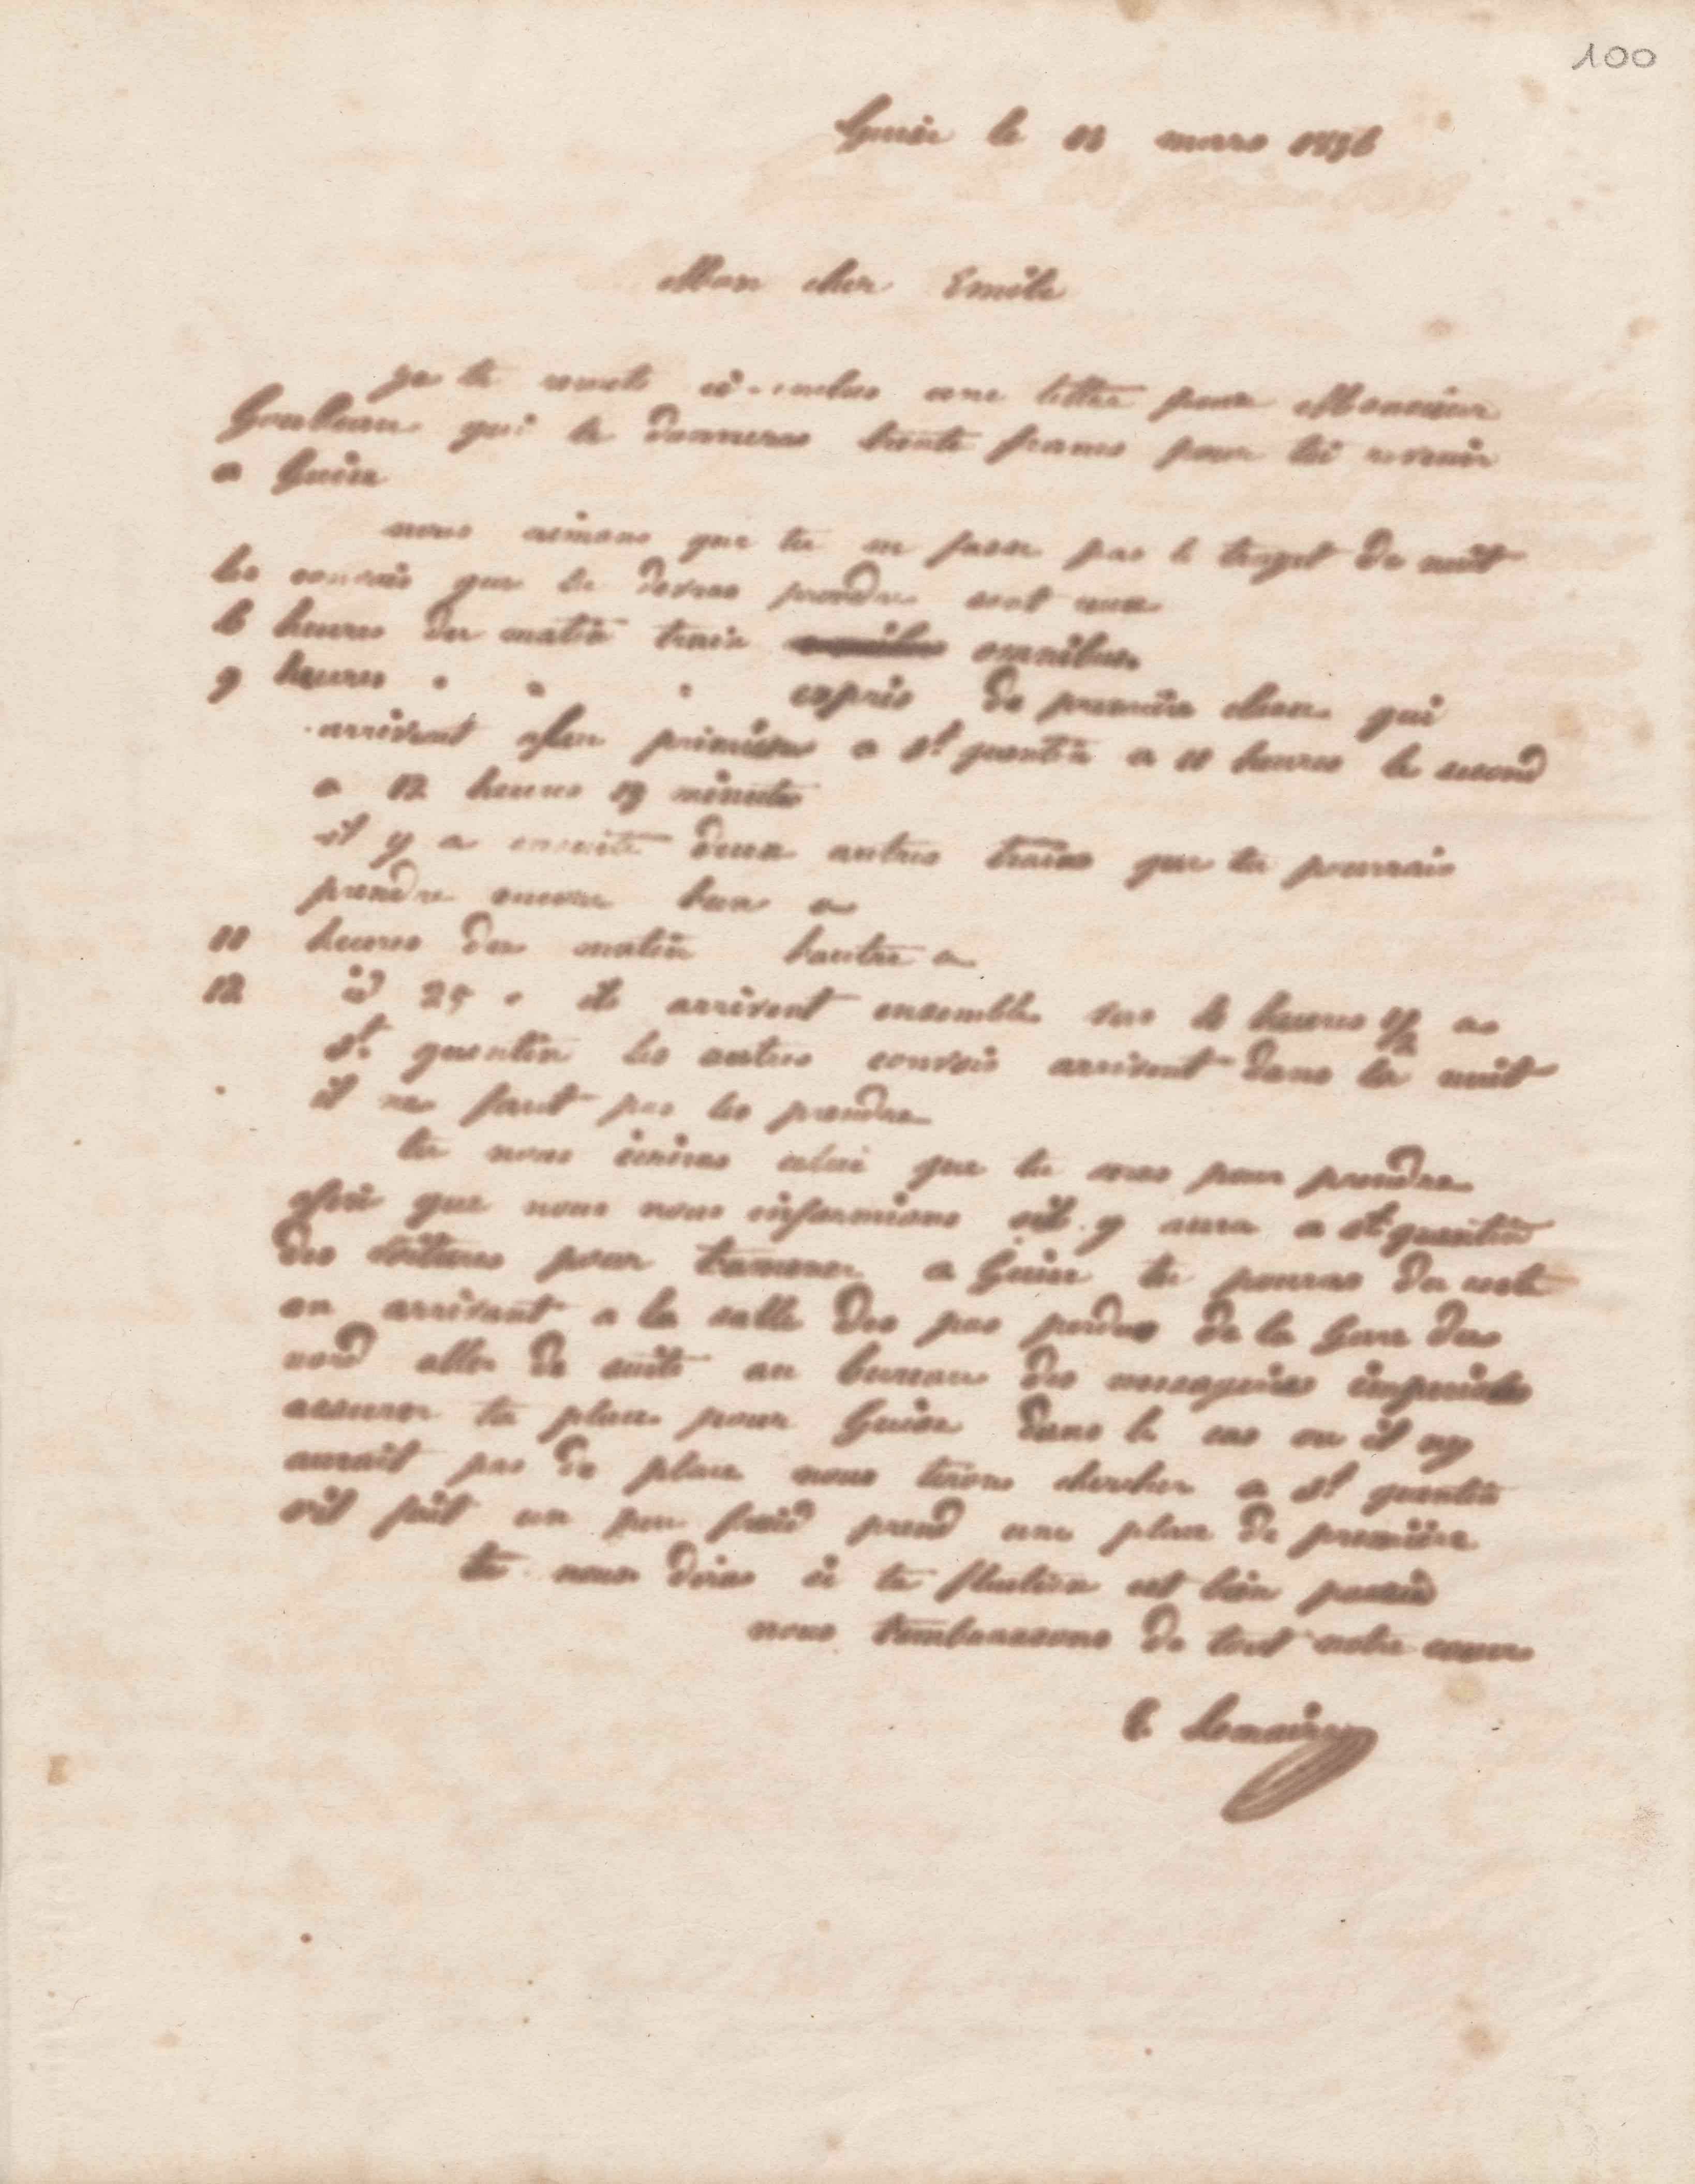 100
Guise le 11 mars 1856
Mon cher Emile
je te remets ci-inclus une lettre pour Monsieur
qui te donneras trente francs pour toi revenir
a Guise
nous aimons que tu ne fasse pas le trajet de nuit
les convois que tu devras prendre sont ceux
heures du matin train omnibus
9 heures " " " expres de premiere classe qui
arrivent premier a St quentin a 11 heures le second
a 12 heures 19 minutes
il y a ensuite deux autres trains que tu pourrais
prendre encore lun a
11 heures du matin lautre a
12 id 25 " ils arrivent ensemble vers heures 1/2 a
St quentin les autres convois arrivent dans la nuit
il ne faut pas les prendre
tu nous ecriras celui que tu pour prendre
que nous nous informions sil y aura a St quentin
des voitures pour tamener a Guise tu pouras du reste
en arrivant a la salle des pas perdus de la Gare du
nord aller de suite au bureau des messageries imperiales
assurer ta place pour Guise dans le cas ou il ny
aurait pas de place nous tirons chercher a St quentin
sil fait un peu froid prend une place de premiere
tu nous diras si ta est bien
nous tembrassons de tout notre coeur
Lemaire